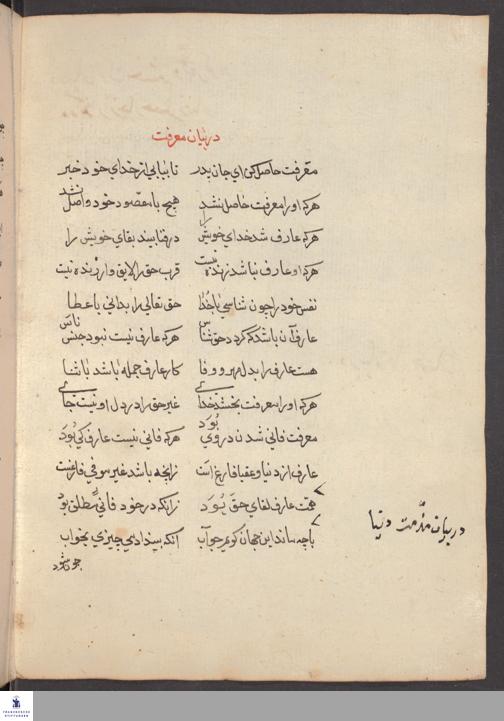 در بیان معرفت
معرفت حاصل کن ای جان پدر تا بیابی از خدای خود خبر
هرکه او را معرفت حاصل نشد هیچ با مقصود خود واصل نشد
هرکه عارف شد خدای خویش را در فنا بیند بقای خویش را
هرکه او عارف نباشد زنده نیست قرب حق را لایق و ارزنده نیست
نفس خود را چون شناسی با خدا حق تعالی را بدانی با عطا
عارف آن باشد که گردد حق شناس هرکه عارف نیست نبود جنس ناس
هست عارف را بدل مهر و وفا کار عارف جمله باشد با شنا
هرکه او را معرفت بخشد خدای غیر حق را در دل او نیست جای
معرفت فانی شدن در وی بود هرکه فانی نیست عارف کی بود
عارف از دنیا و عقبا فارغ است زانچه باشد غیر مولی فارغست
همت عارف لقای حق بود زانکه در خود فانی مطلق بود
با چه ماند این جهان گویم جواب آنکه بیند ادمی چیزی بخواب
در بیان مذمت دنیا
چون شود
FRANCKESCHE
STIFTUNGEN